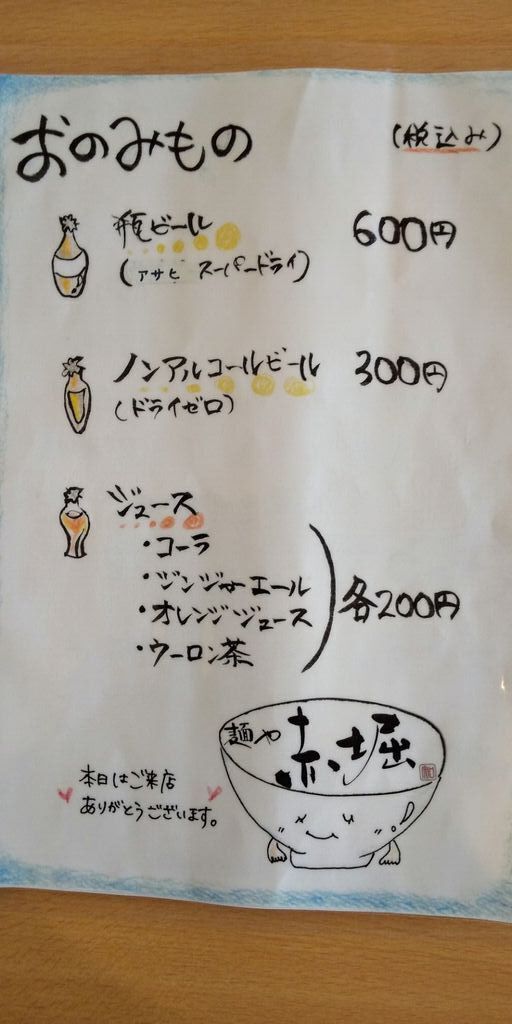 おのみもの (税込み)
瓶ビール 600円
(アサヒ スーパードライ)
ノンアルコールビール 300円
(ドライゼロ)
ジュース
・コーラ
・ジンジャーエール
・オレンジジュース
・ウーロン茶
各200円
麺や 赤堀
本日はご来店
ありがとうございます。